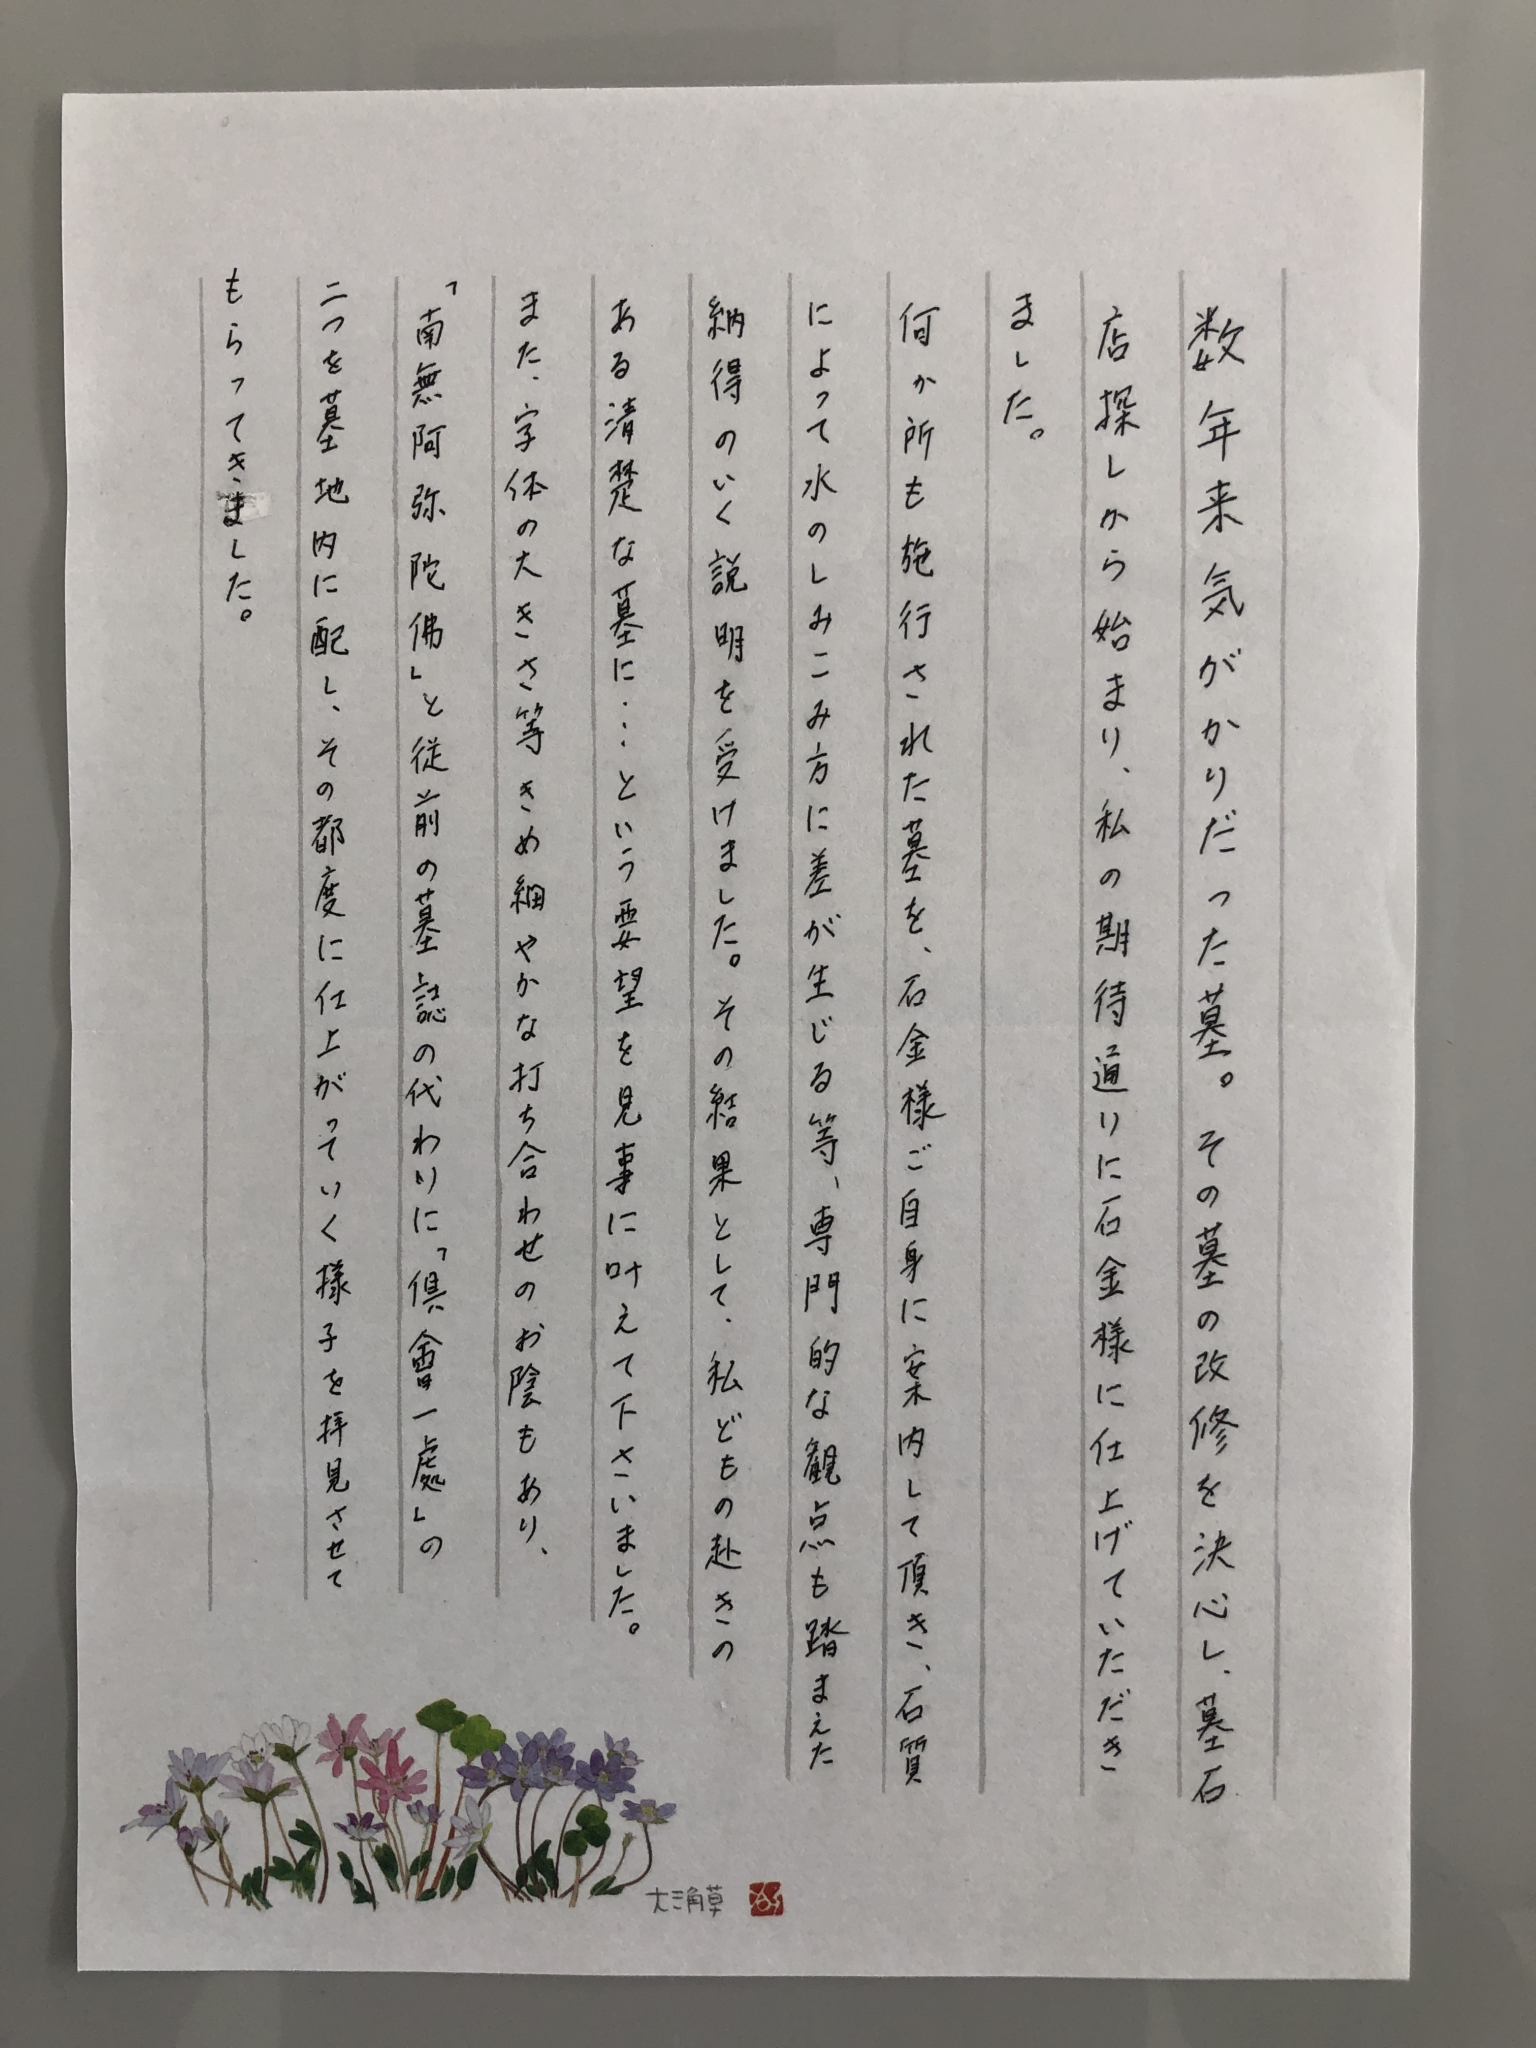 数年来気がかりだった墓。その墓の改修を決心し、墓石
店探しから始まり、私の期待通りに石金様に仕上げていただき
ました。
何か所も施行された墓を、石金様ご自身に案内して頂き、石質
によって水のしみこみ方に差が生じる等、専門的な観点も踏まえた
納得のいく説明を受けました。その結果として、私どもの赴きの
ある清楚な墓に…という要望を見事に叶えて下さいました。
また、字体の大きさ等きめ細やかな打ち合わせのお陰もあり、
「南無阿弥陀佛」と従前の墓誌の代わりに「倶會一處」の
二つを墓地内に配し、その都度に仕上がっていく様子を拝見させて
もらってきました。
大三角草